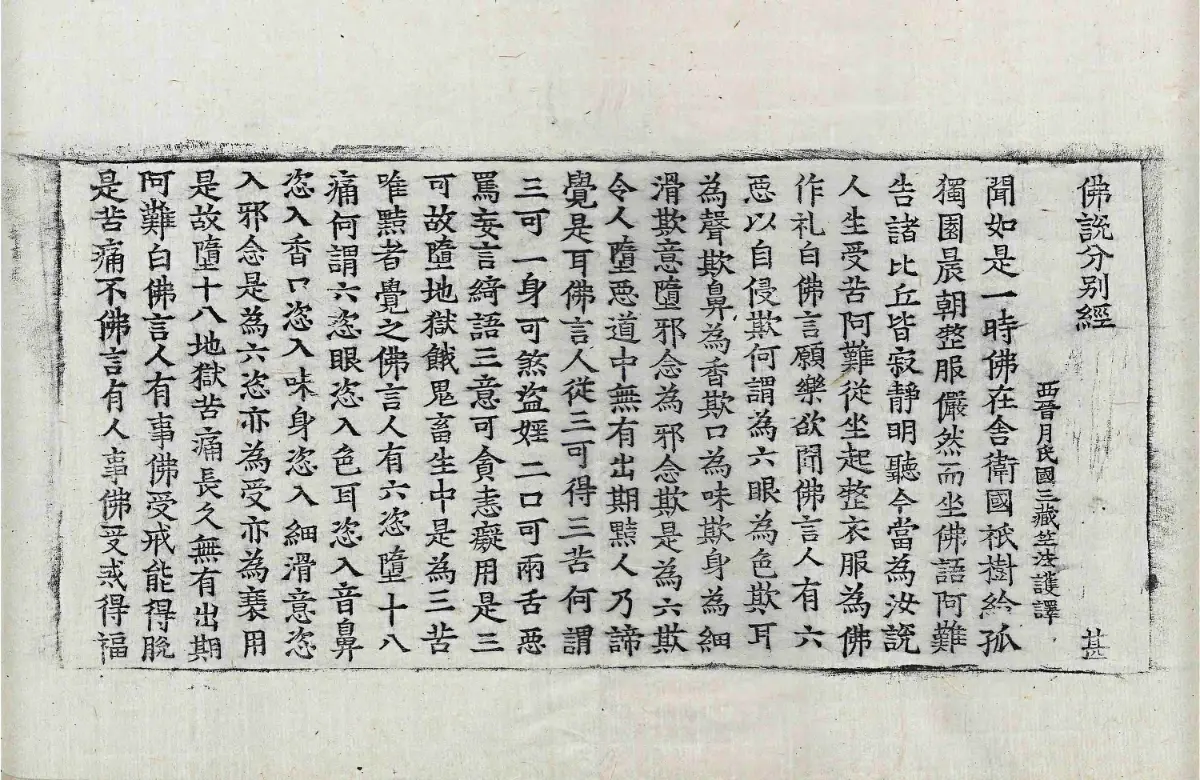 佛説分别經 甚
西晉月氏國三藏竺法護譯
聞如是一時佛在舍衛國祇樹給孤
獨園晨朝整服儼然而坐佛語阿難
告諸比丘皆寂靜明聽今當為汝説
人生受苦阿難從坐起整衣服為佛
作礼白佛言願樂欲聞佛言人有六
惡以自侵欺何謂為六眼為色欺耳
為聲欺鼻為香欺口為味欺身為細
滑欺意墮邪念為邪念欺是為六欺
令人墮惡道中無有出期黠人乃諦
覺是耳佛言人從三可得三苦何謂
三可一身可煞盗婬二口可兩舌惡
罵妄言綺語三意可貪恚癡用是三
可故墮地獄餓鬼畜生中是為三苦
唯黠者覺之佛言人有六恣墮十八
痛何謂六恣眼恣入色耳恣入音鼻
恣入香口恣入味身恣入細滑意恣
入邪念是為六恣亦為受亦為衰用
是故墮十八地獄苦痛長久無有出期
阿難白佛言人有事佛受戒能得脫
是苦痛不佛言有人事佛受戒得福